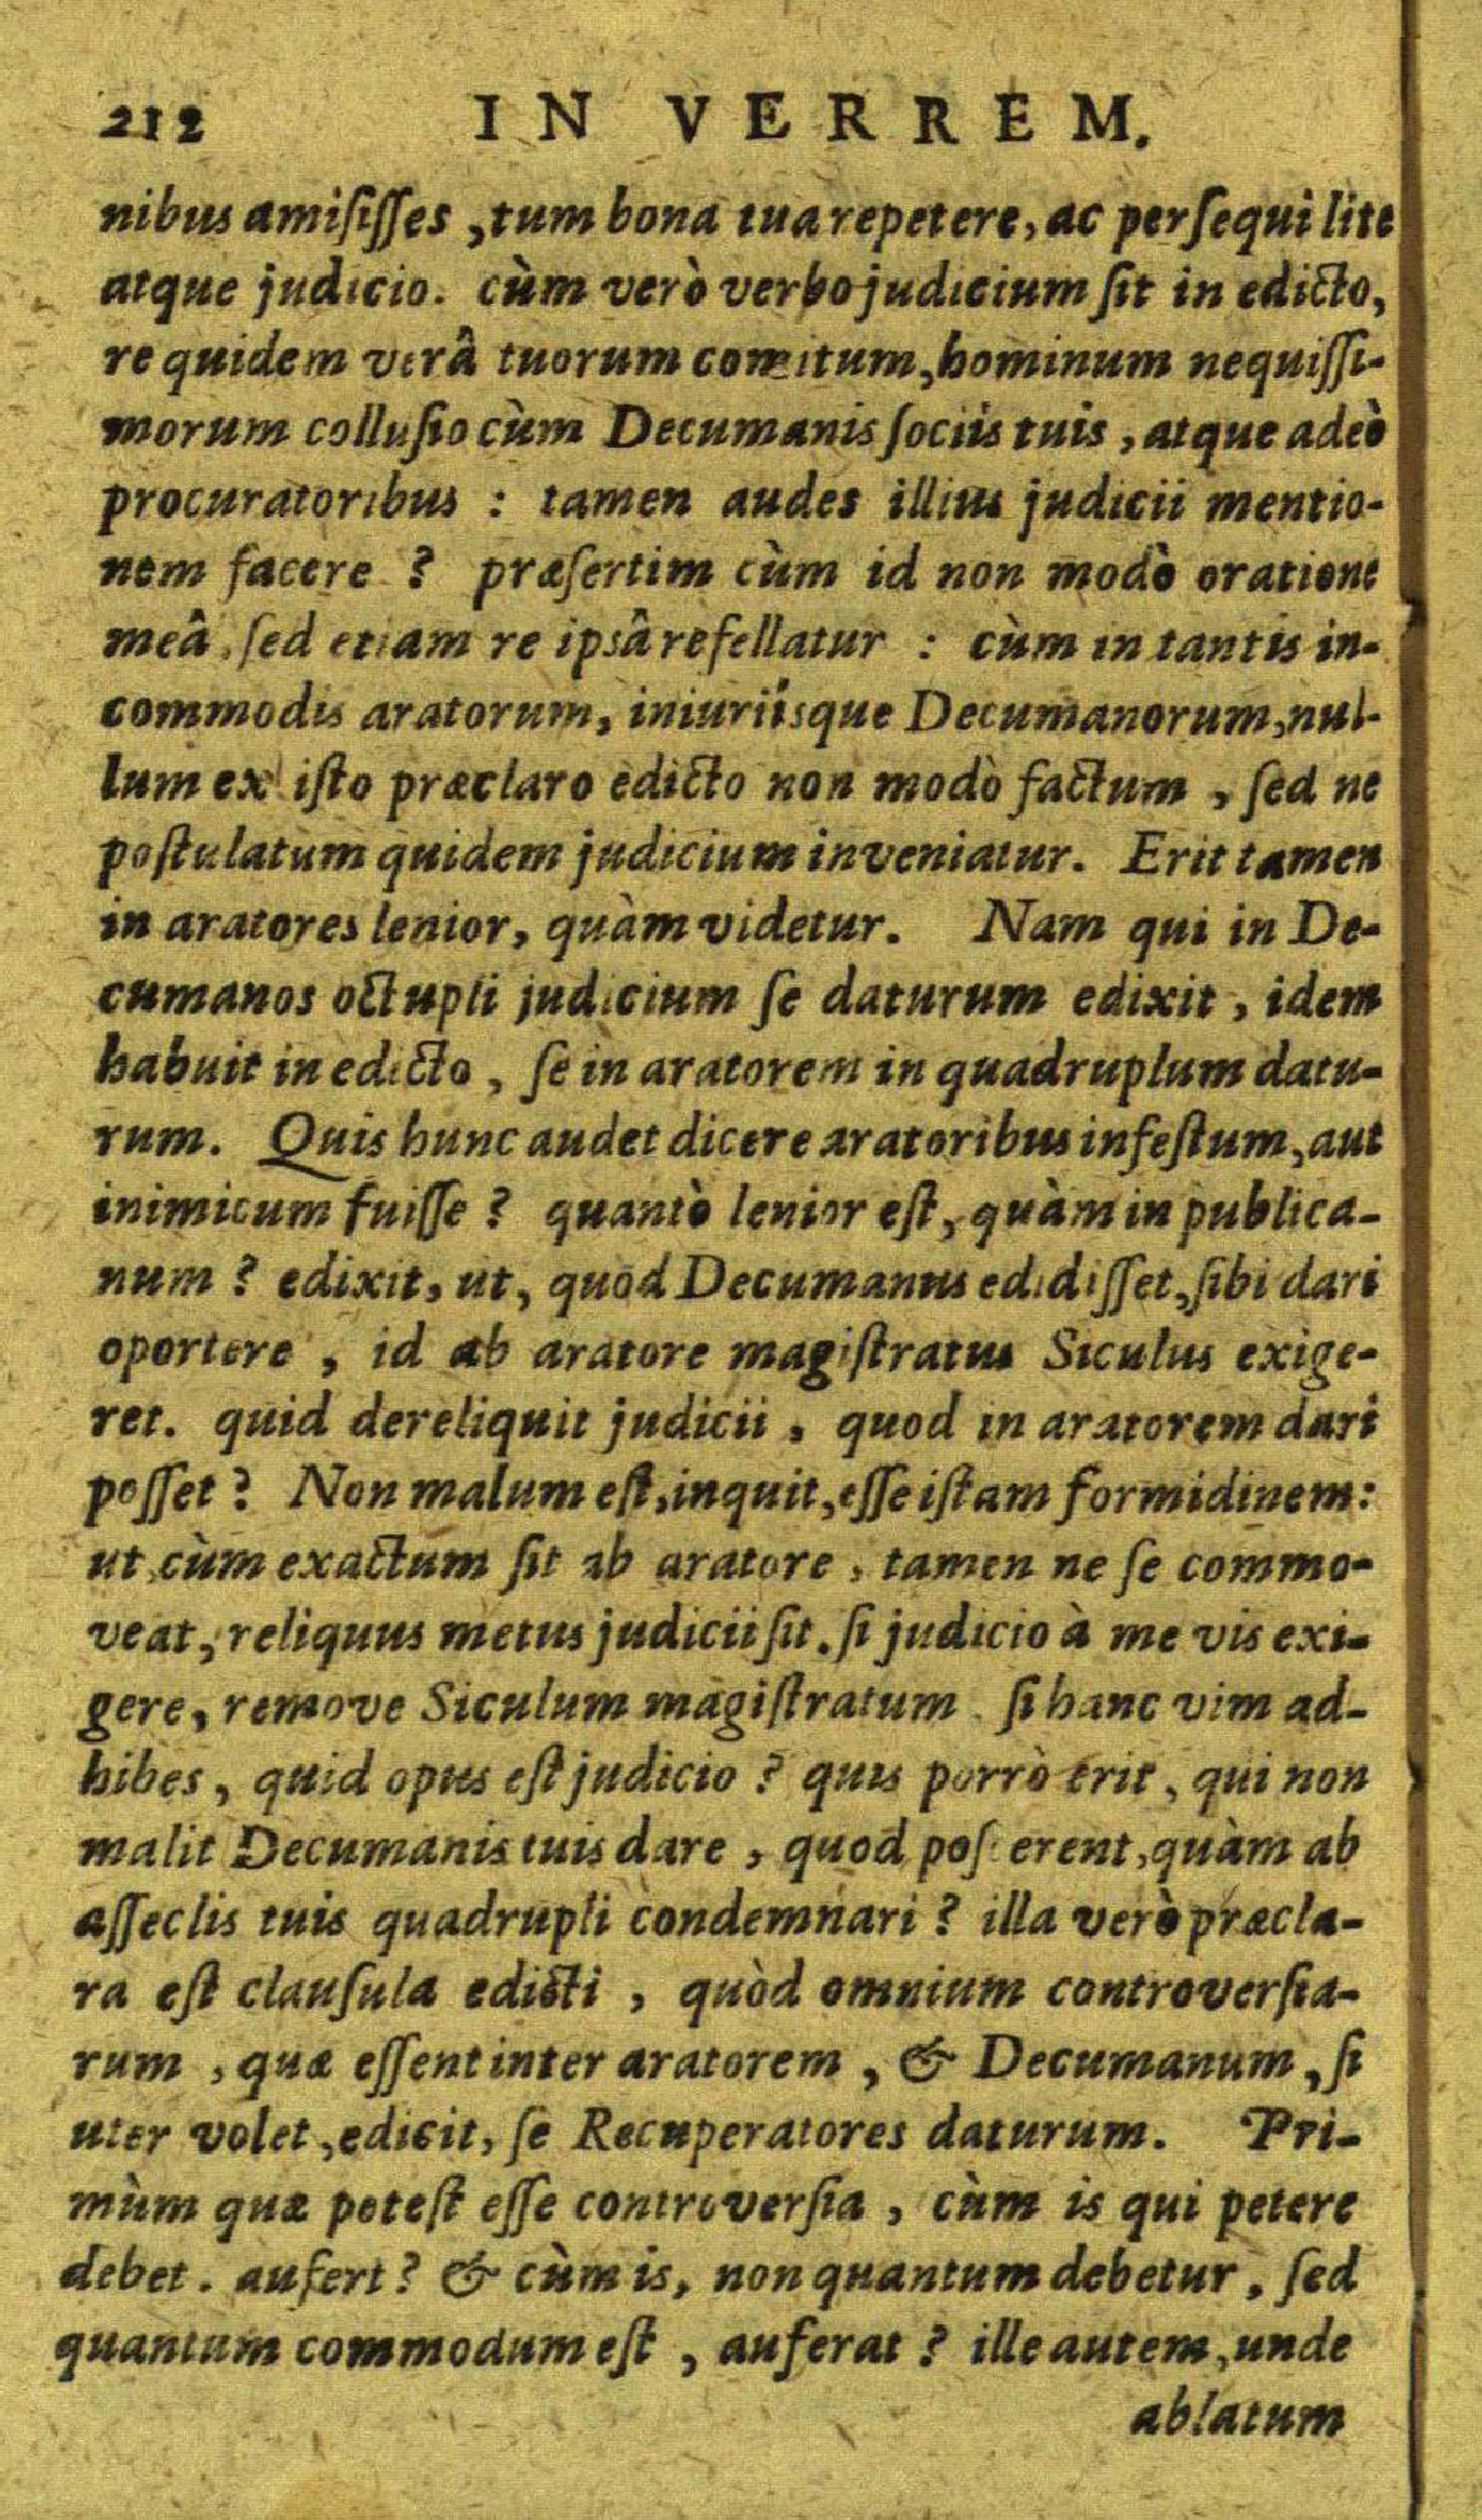 212 IN VERREM.
nibus amiſiſſes, tum bona tua repetere, ac perſequi lite
atque judicio. cùm verò verbo judicium ſit in edicto,
re quidem verâ tuorum comitum, hominum nequiſſi-
morum colluſio cùm Decumanis ſociis tuis, atque adeò
procuratoribus : tamen audes illius judicii mentio-
nem facere ? præſertim cùm id non modò oratione
meâ, ſed etiam re ipsâ refellatur : cùm in tantis in-
commodis aratorum, iniuriísque Decumanorum, nul-
lum ex iſto præclaro edicto non modò factum, ſed ne
poſtulatum quidem judicium inveniatur. Erit tamen
in aratores lenior, quàm videtur. Nam qui in De-
cumanos octupli judicium ſe daturum edixit, idem
habuit in edicto, ſe in aratorem in quadruplum datu-
rum. Quis hunc audet dicere aratoribus infeſtum, aut
inimicum fuiſſe ? quantò lenior eſt, quàm in publica-
num ? edixit, ut, quod Decumanus edidiſſet, ſibi dari
oportere, id ab aratore magiſtratus Siculus exige-
ret. quid dereliquit judicii, quod in aratorem dari
poſſet ? Non malum eſt, inquit, eſſe iſtam formidinem:
ut cùm exactum ſit ab aratore, tamen ne ſe commo-
veat, reliquus metus judicii ſit. ſi judicio à me vis exi-
gere, remove Siculum magiſtratum. ſi hanc vim ad-
hibes, quid opus eſt judicio ? quis porrò erit, qui non
malit Decumanis tuis dare, quod poſcerent, quàm ab
aſſeclis tuis quadrupli condemnari ? illa verò præcla-
ra eſt clauſula edicti, quòd omnium controverſia-
rum, quæ eſſent inter aratorem, & Decumanum, ſi
uter volet, edicit, ſe Recuperatores daturum. Pri-
mùm quæ poteſt eſſe controverſia, cùm is qui petere
debet. aufert ? & cùm is, non quantum debetur, ſed
quantum commodum eſt, auferat ? ille autem, unde
ablatum